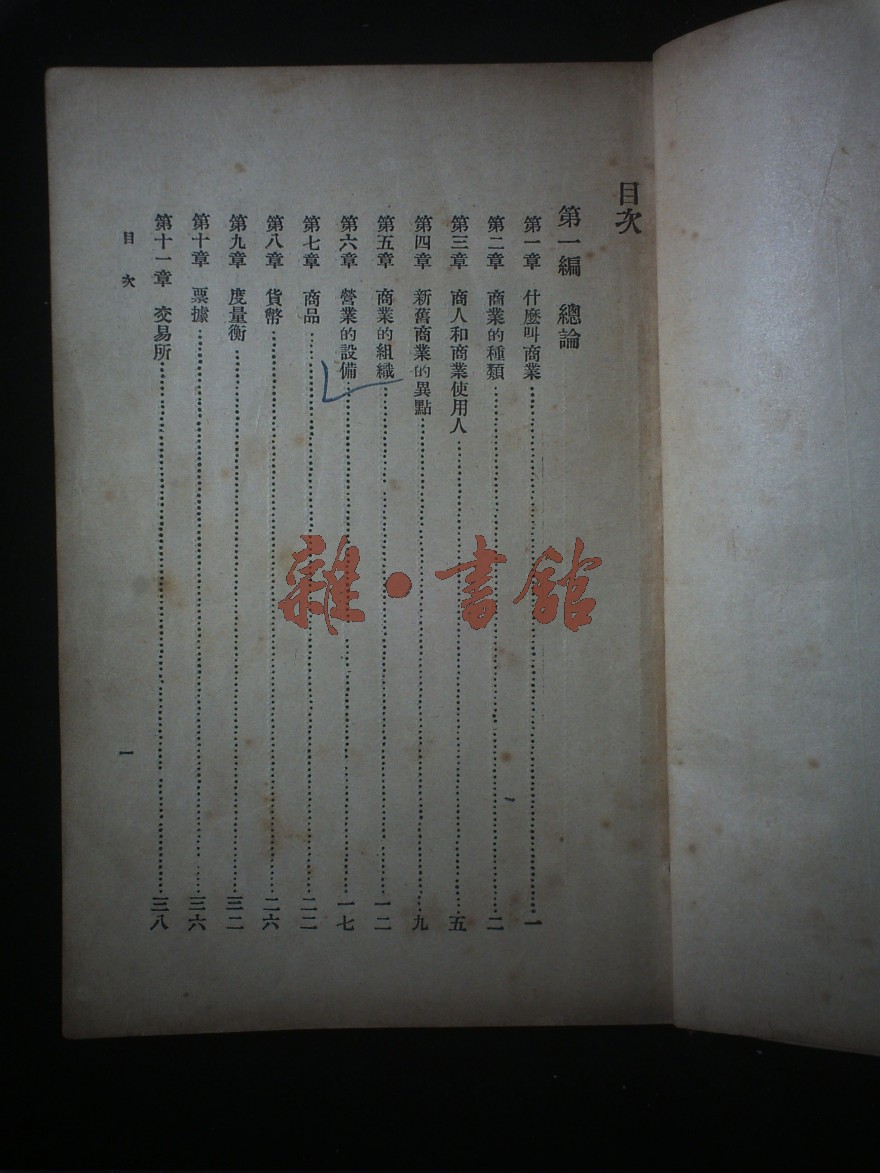 目次
第一編 總論
第一章 什麼叫商業……一
第二章 商業的種類……二
第三章 商人和商業使用人……五
第四章 新舊商業的異點……九
第五章 商業的組織……一二
第六章 營業的設備……一七
第七章 商品……二二
第八章 貨幣……二六
第九章 度量衡……三二
第十章 票據……三六
第十一章 交易所……三八
目次 一
雜·書館